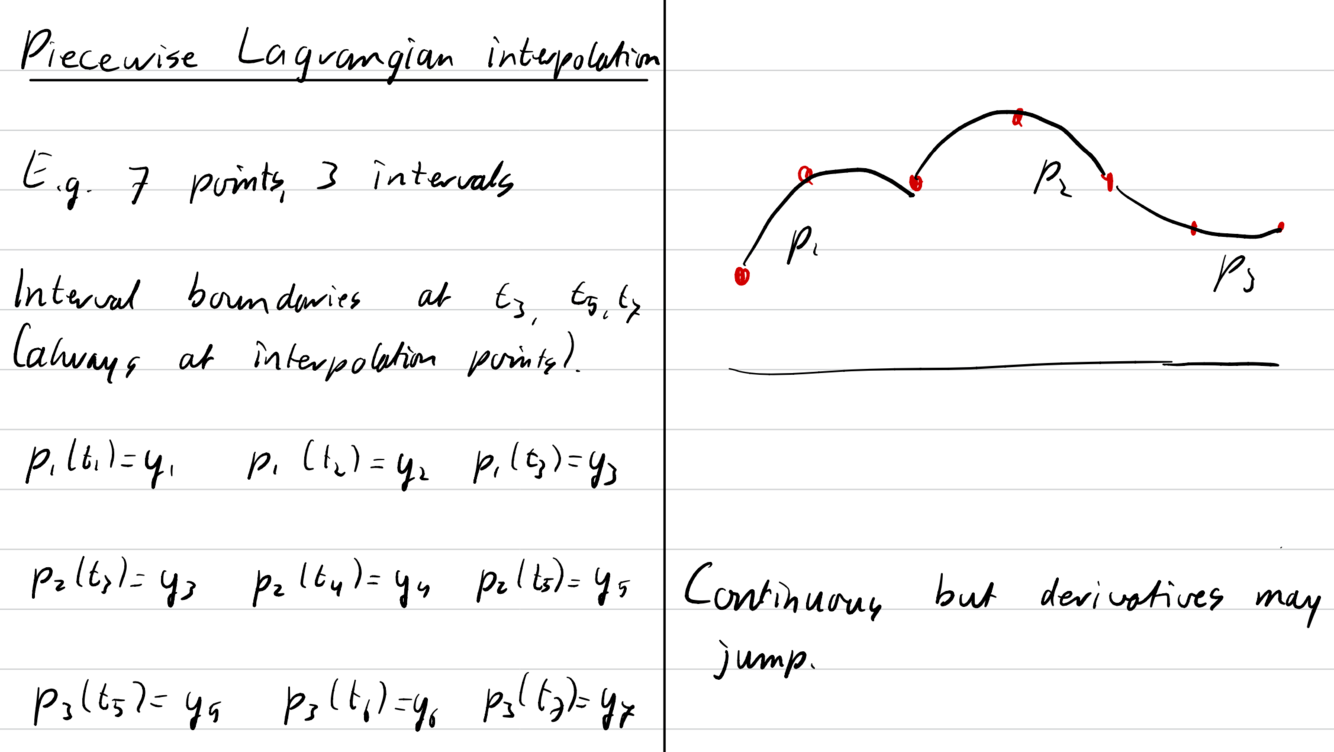 Piecewise Lagrangian interpolation
E.g. 7 points, 3 intervals
Interval boundaries at t₃, t₅, t₇
(always at interpolation points).
p₁(t₁)=y₁ p₁(t₂)=y₂ p₁(t₃)=y₃
p₂(t₃)=y₃ p₂(t₄)=y₄ p₂(t₅)=y₅
p₃(t₅)=y₅ p₃(t₆)=y₆ p₃(t₇)=y₇
p₁
p₂
p₃
Continuous but derivatives may
jump.